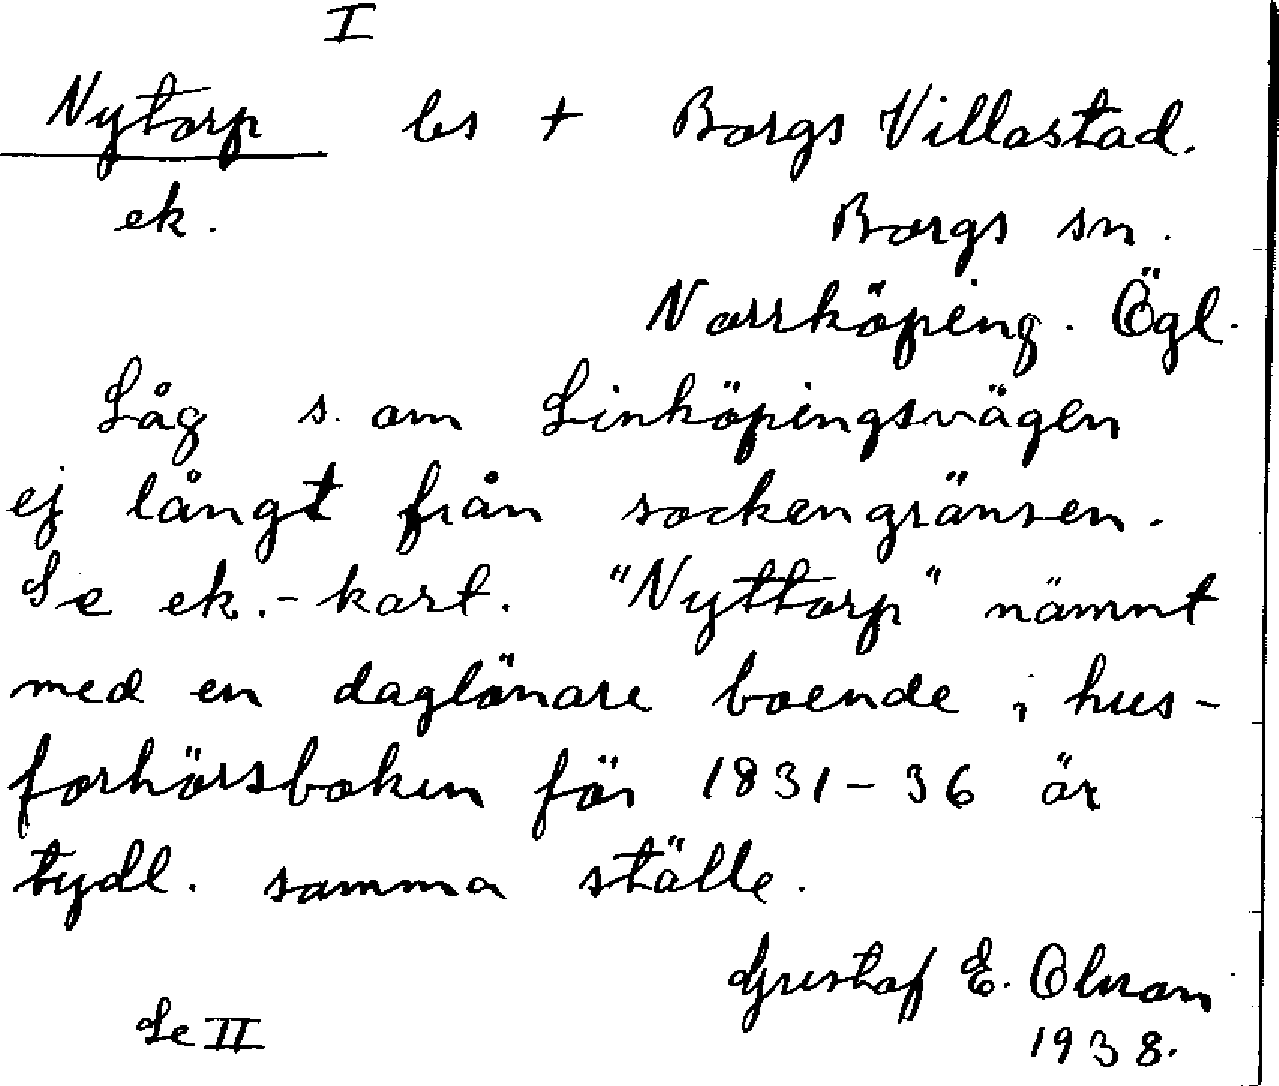 I
Nytorp bs + Borgs Villastad.
ek. Borgs sn.
Norrköping. Ögl.
Låg s. om Linköpingsvägen
ej långt från sockengränsen.
Se ek.-kart. "Nyttorp" nämnt
med en daglönare boende i hus-
förhörsboken för 1831-36 är
tydl. samma ställe.
Gustaf E. Olsson
Se II 1938.